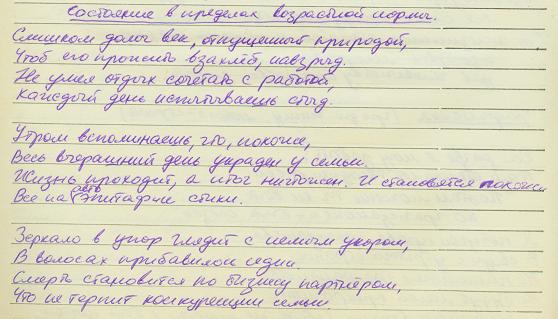 Состояние в пределах возрастной нормы.
Слишком долог век, отпущенный природой,
Чтоб его прожить взахлёб, навзрыд.
Не умея отдых сочетать с работой,
Каждый день испытываешь стыд.
Утром вспоминаешь, что, похоже,
Весь вчерашний день украден у семьи.
Жизнь проходит, а итог ничтожен. И становятся похожи
Все на автоэпитафии стихи.
Зеркало в упор глядит с немым укором,
В волосах прибавилось седин.
Смерть становится по бизнесу партнёром,
Что не терпит конкуренции семьи.